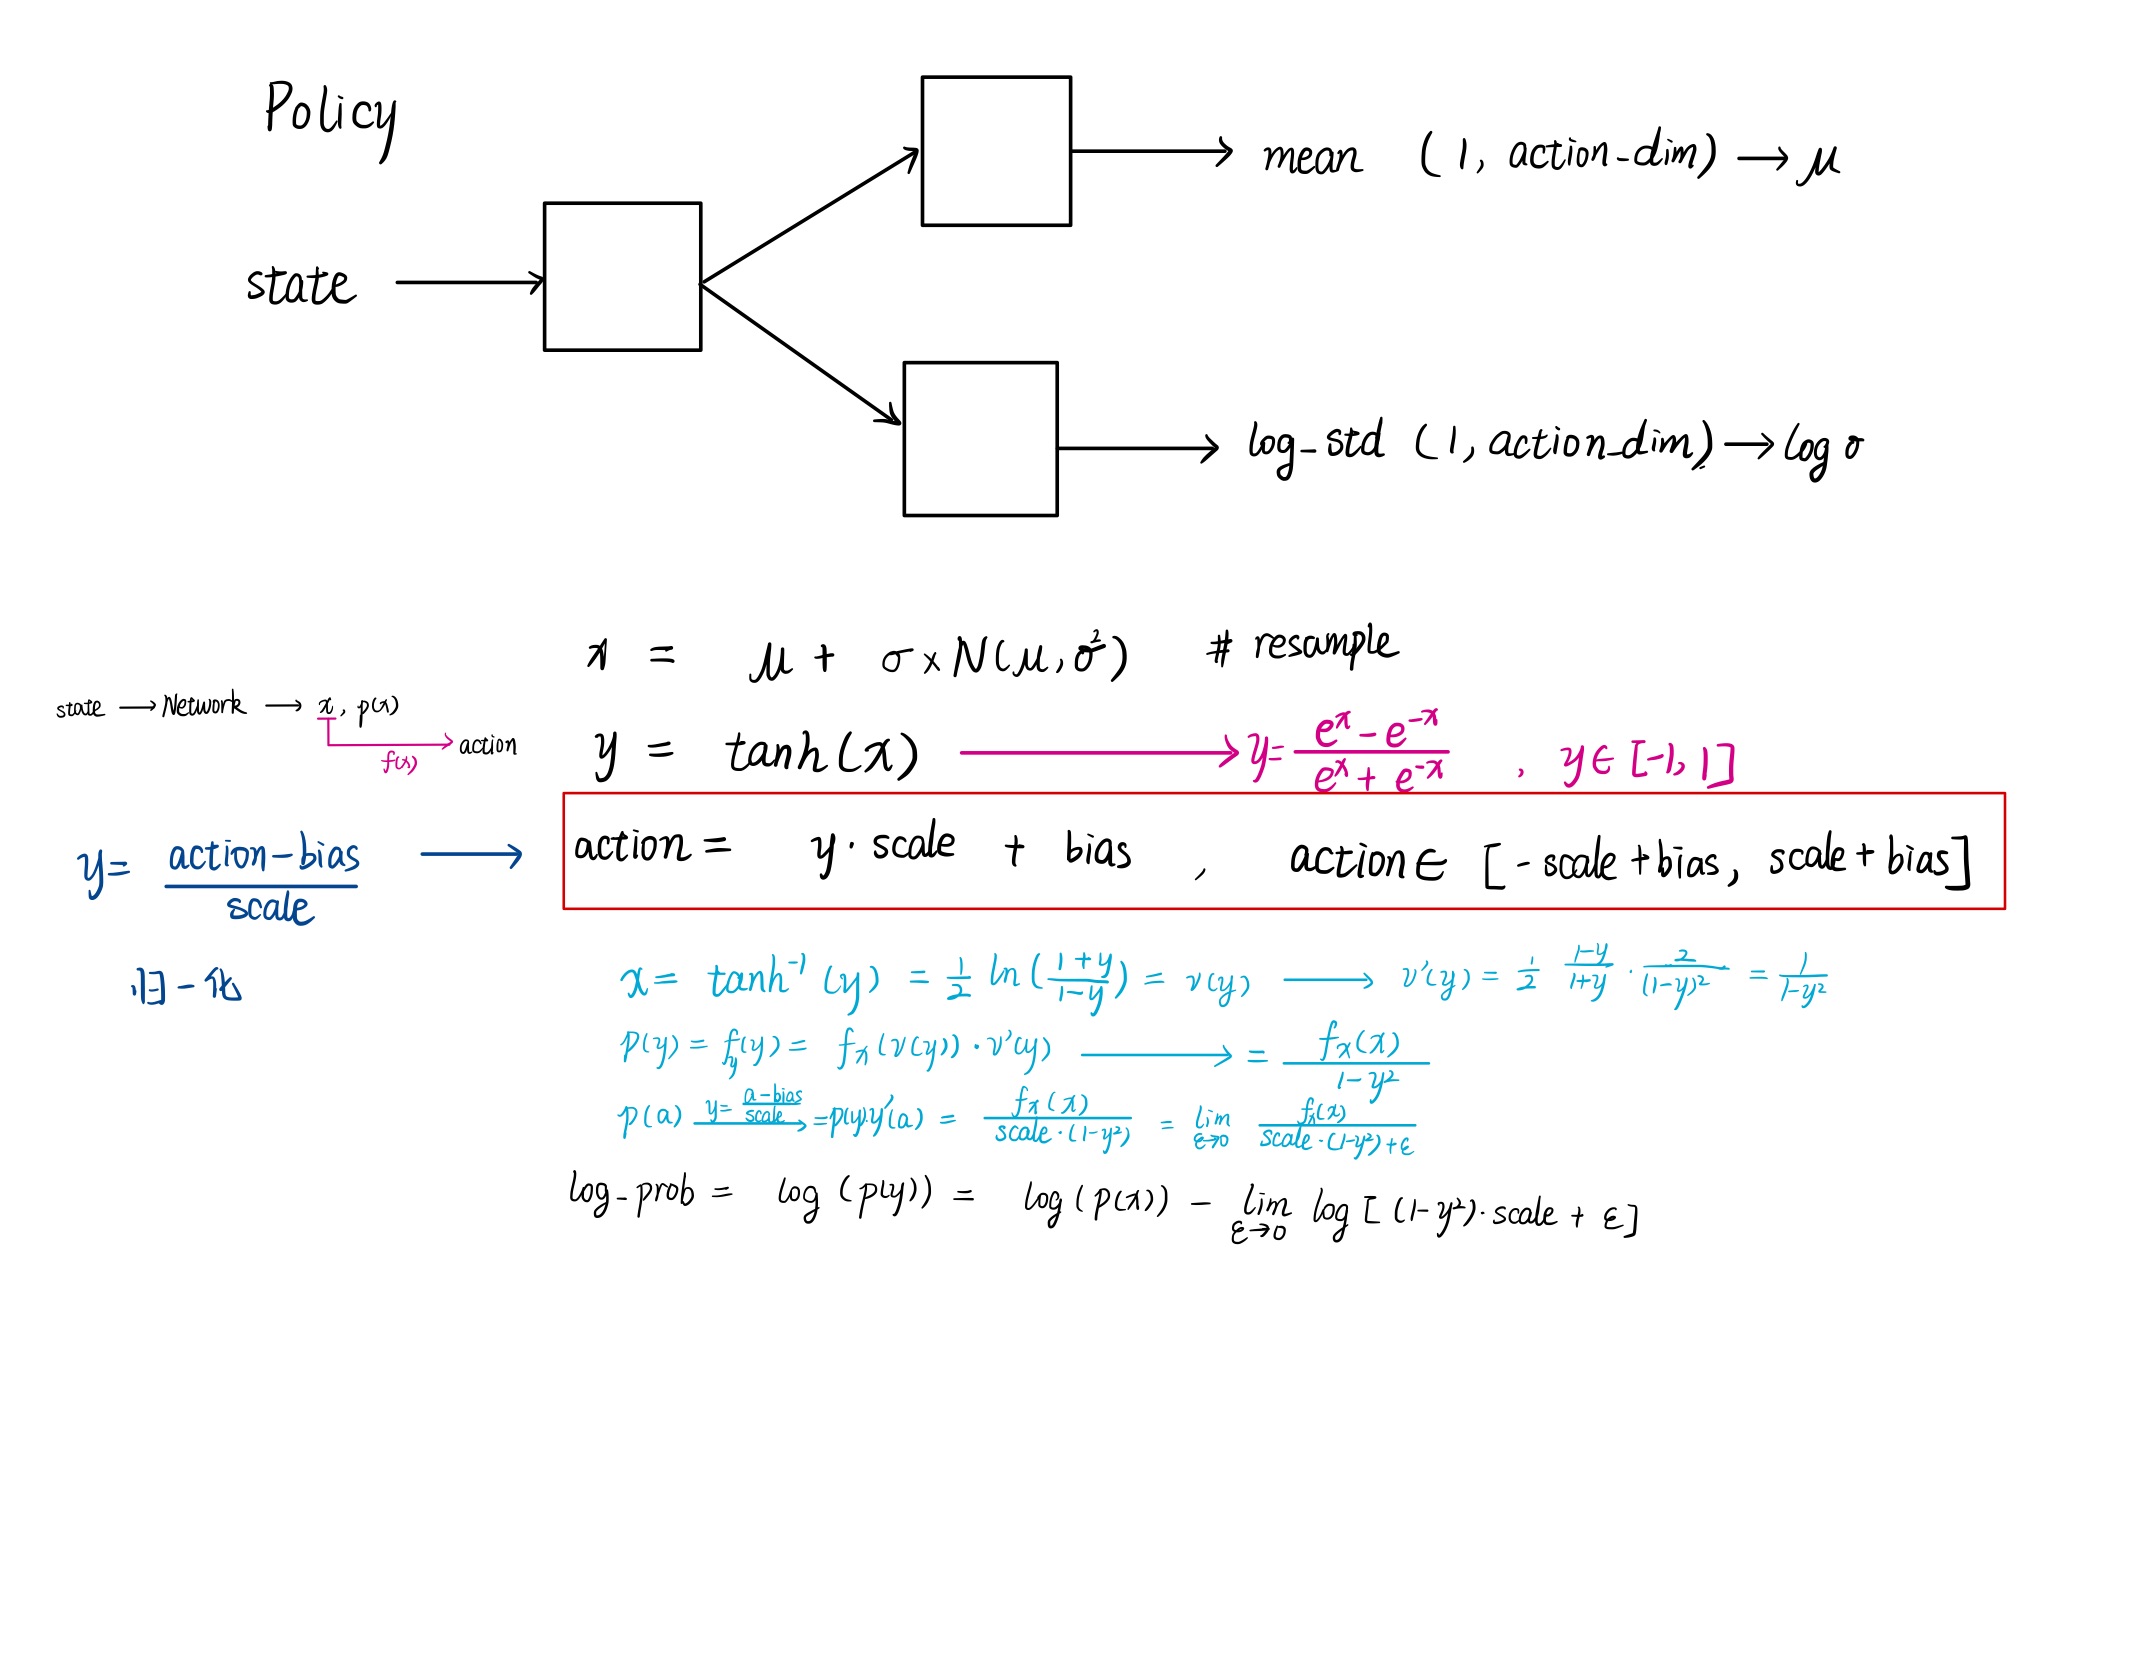 Policy
mean (1, action-dim) → μ
state
log_std (1, action_dim) → log σ
x = μ + σ × N(μ, σ²) # resample
state → Network → x, p(x)
f(x) action
y = tanh(x) → y = (e^x - e^-x) / (e^x + e^-x) , y ∈ [-1, 1]
y = (action - bias) / scale → action = y · scale + bias , action ∈ [-scale + bias, scale + bias]
归一化
x = tanh⁻¹(y) = 1/2 ln((1+y)/(1-y)) = v(y) → v'(y) = 1/2 (1-y)/(1+y) · 2/(1-y)² = 1/(1-y²)
p(y) = f_y(y) = f_x(v(y)) · v'(y) → = f_x(x) / (1-y²)
p(a) y = (a-bias)/scale → = p(y)·y'(a) = f_x(x) / (scale·(1-y²)) = lim ε→0 f_x(x) / (scale·(1-y²)+ε)
log_prob = log(p(y)) = log(p(x)) - lim ε→0 log[(1-y²)·scale + ε]